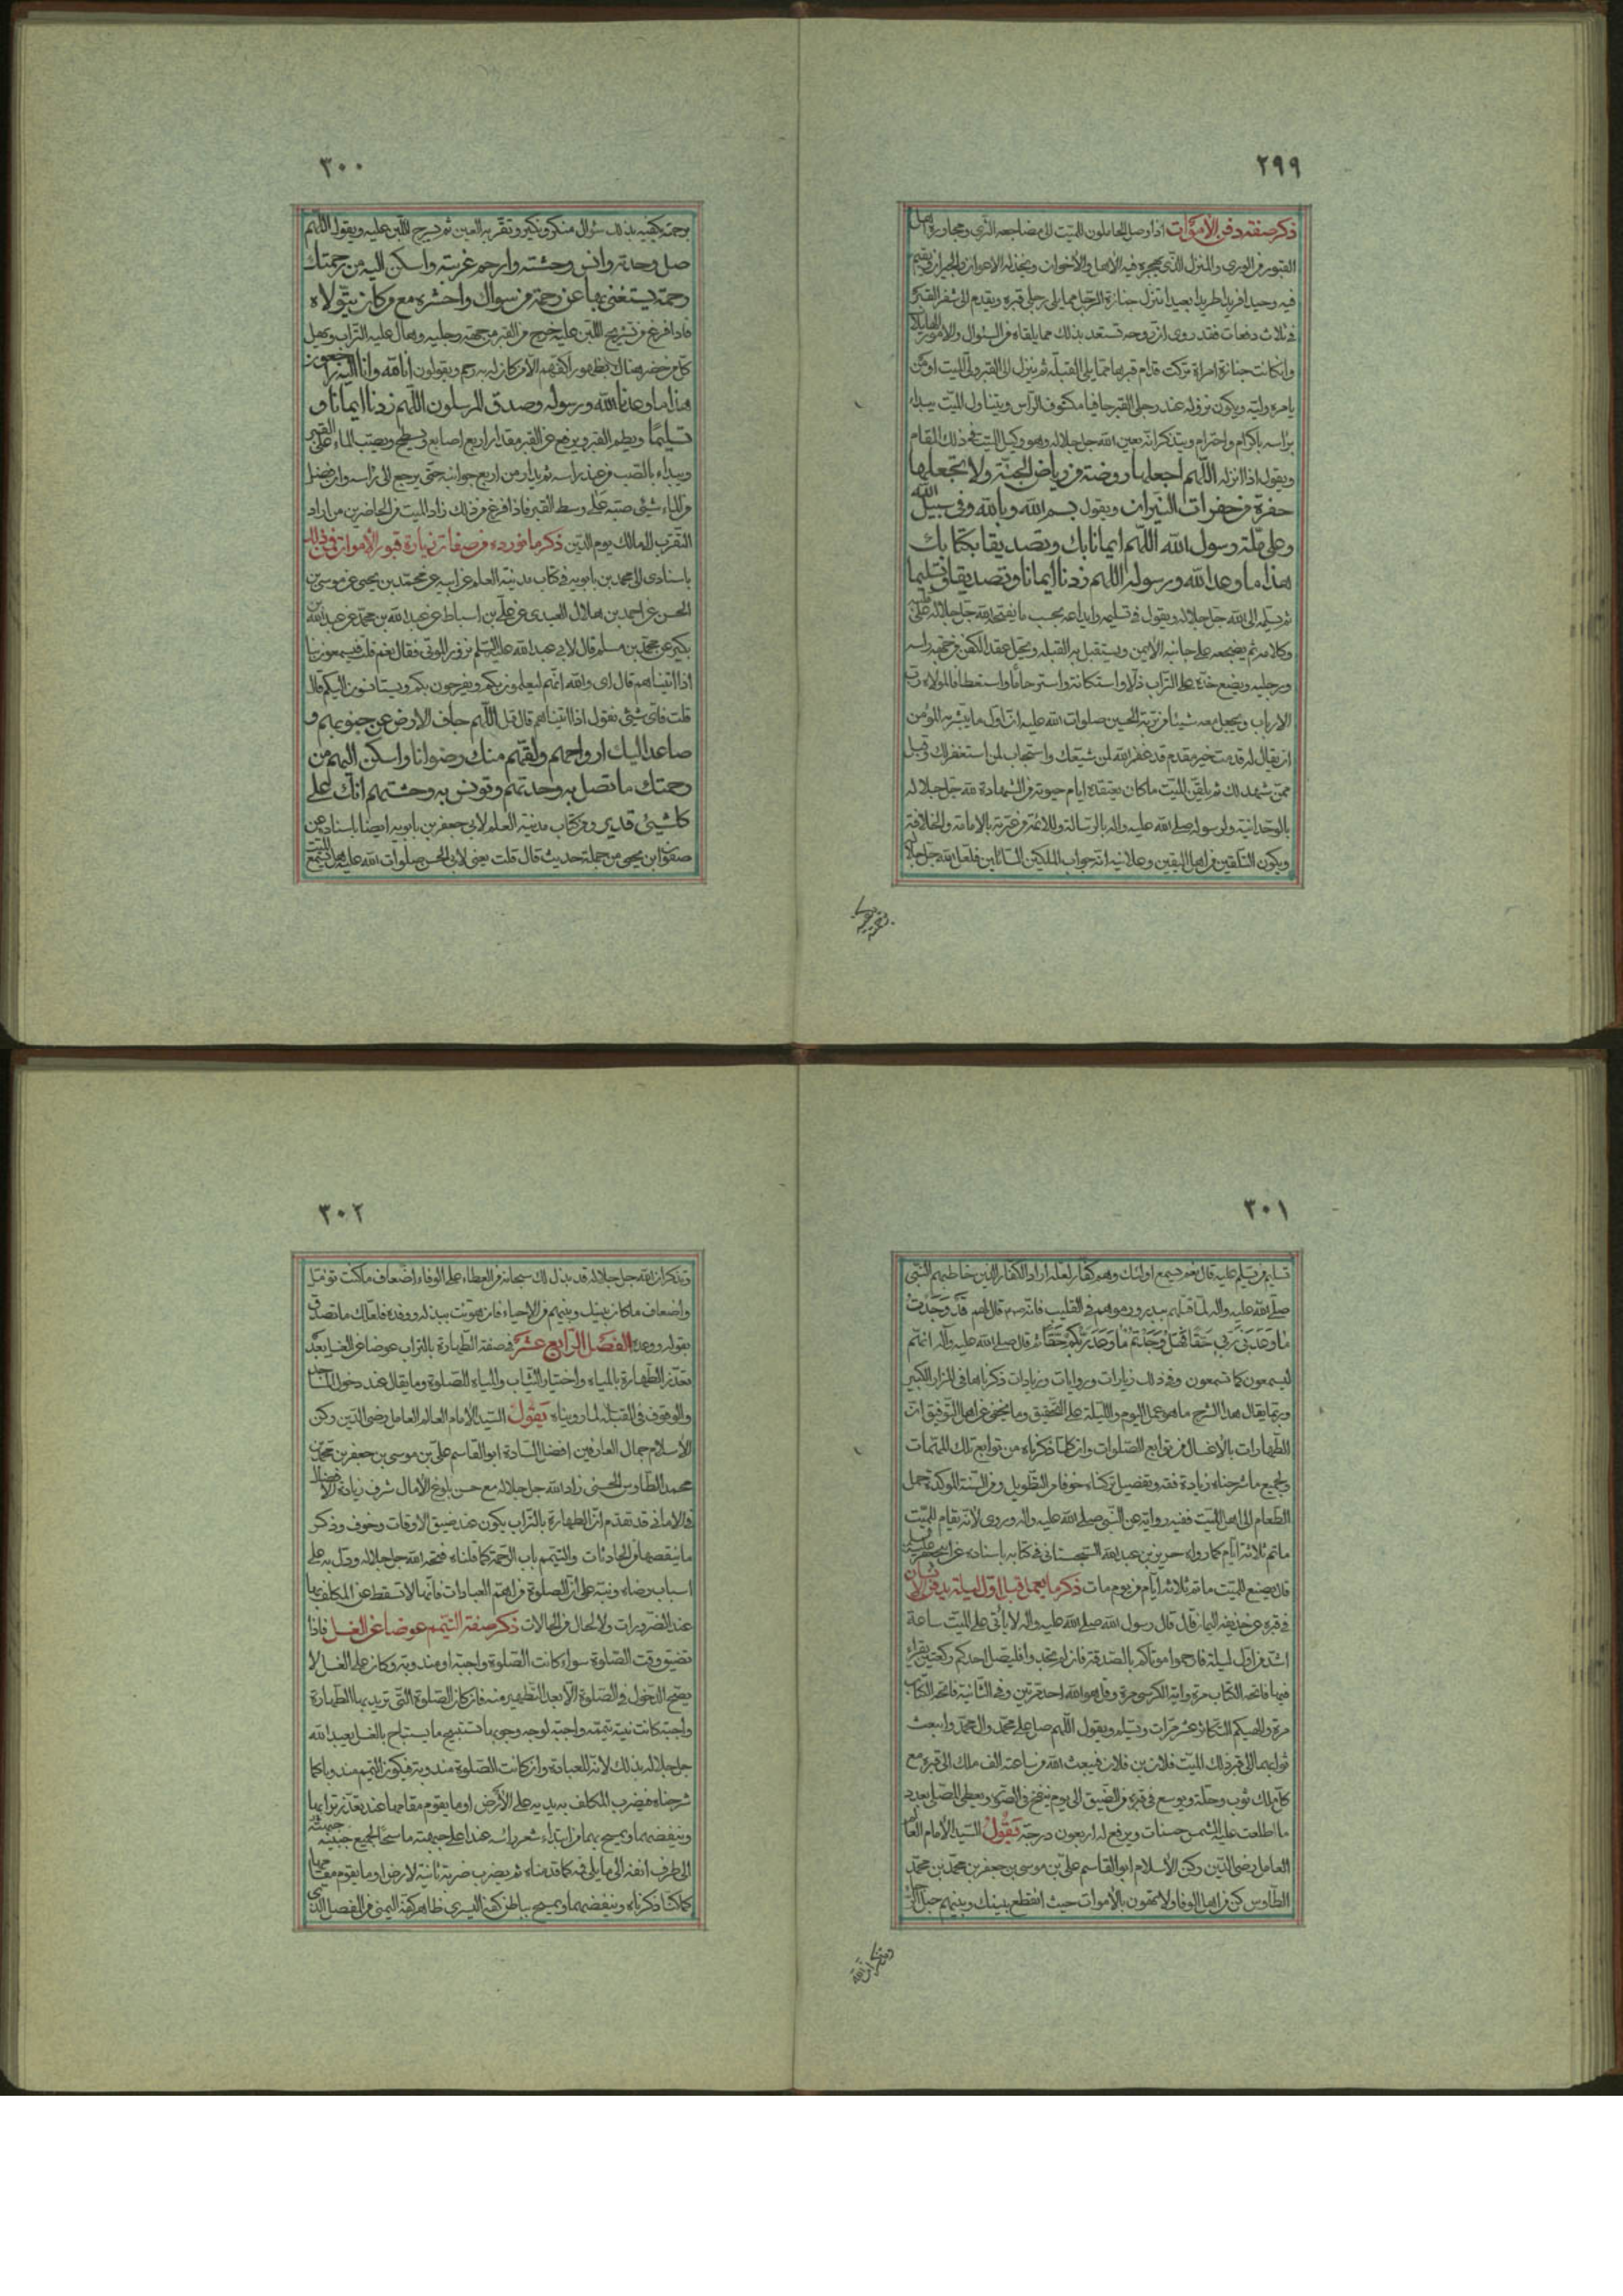 ٢٩٩
ذكر صفة دفن الأموات اذا وصل الحاملون للميت الى مضاجعه الثرى ومجاورة اهل
القبور من الورى والمنزل الذى يهجره فيه الأهل والأخوان ويخذله الاعوان والجيران
فيه وحيدا فريدا طريدا بعيدا تنزل جنازة الرجل مما يلى رجلى قبره ويقدم الى شفير القبر
فى ثلاث دفعات فقد روى ان روحه تستعد بذلك مما يلقاه من السئوال والامور
وان كانت جنازة امراة تركت قدام قبرها مما يلى القبلة ثم ينزل الى القبر ولى الميت او من
يامره وليه ويكون نزوله عند رجلى القبر حافيا مكشوف الرأس ويتناول الميت يبداء
براسه باكرام واحترام ويتذكر انه بعين الله جل جلاله وهو وكيل الميت فى ذلك المقام
ويقول اذا انزله اللهم اجعلها روضة من رياض الجنة ولا تجعلها
حفرة من حفرات النيران ويقول بسم الله وبالله وفى سبيل الله
وعلى ملة رسول الله اللهم ايمانا بك وتصديقا بكتابك
هذا ما وعد الله ورسوله اللهم زدنا ايمانا وتصديقا وتسليما
ثم يسلمه الى الله جل جلاله ويقول فى تسليمه وايداعه بحسب ما يفتحه الله جل جلاله على
وكلامه ثم يضجعه على جانبه الأيمن ويستقبل به القبلة ويحل عقد الكفن من جهة راسه
ورجليه ويضع خده على التراب ذلا واستكانة واسترحاما واستعطافا لمولاه رب
الارباب ويجعل معه شيئا من تربة الحسين صلوات الله عليه ان اول ما يبشر به المؤمن
ان يقال له قدمت خير مقدم قد غفر الله لمن شيعك واستجاب لمن استغفر لك وقبل
ممن شهد لك ثم يلقن الميت ما كان يعتقده ايام حيوته من الشهادة لله جل جلاله
بالوحدانية ولرسوله صلى الله عليه واله بالرسالة وللائمة من عترته بالامامة والخلافة
ويكون التلقين من اهل اليقين وعلانية انه جواب الملكين السائلين فلعل الله جل جلاله
٣٠٠
برحمته يكفيه بذلك سئوال منكر ونكير وتقر به العين ثم يشرج اللبن عليه ويقول اللهم
صل وحدته وانس وحشته وارحم غربته واسكن اليه من رحمتك
رحمة يستغنى بها عن رحمة من سواك واحشره مع من كان يتولاه
فاذا فرغ من تشريج اللبن عليه خرج من القبر من جهة رجليه وهال عليه التراب ويهيل
كل من حضر هناك بظهور اكفهم الا من كان له به رحم ويقولون انا لله وانا اليه راجعون
هذا ما وعدنا الله ورسوله وصدق المرسلون اللهم زدنا ايمانا و
تسليما ويطم القبر ويرفع عن القبر مقدار اربع اصابع ويسطح ويصب الماء على القبر
ويبداء بالصب من عند راسه ثم يدار من اربع جوانبه حتى يرجع الى راسه وان فضل
من الماء شئ صبه على وسط القبر فاذا فرغ من ذلك زاد الميت من الحاضرين من اراد
التقرب لمالك يوم الدين ذكر ما نورده من صفات زيارة قبور الأموات فى ذلك
باسنادى الى محمد بن بابويه فى كتاب مدينة العلم عن ابيه عن محمد بن يحيى عن موسى بن
الحسن عن احمد بن هلال العبدى عن على بن اسباط عن عبد الله بن محمد عن عبد الله بن
بكير عن محمد بن مسلم قال قلت لابى عبد الله عليه السلم نزور الموتى فقال نعم قلت فيسمعون بنا
اذا اتيناهم قال اى والله انهم ليعلمون بكم ويفرحون بكم ويستانسون اليكم قال
قلت فاى شئ نقول اذا اتيناهم قال قل اللهم جاف الارض عن جنوبهم و
صاعد اليك ارواحهم ولقهم منك رضوانا واسكن اليهم من
رحمتك ما تصل به وحدتهم وتونس به وحشتهم انك على
كل شئ قدير ومن كتاب مدينة العلم لابى جعفر بن بابويه ايضا باسناده عن
صفوان بن يحيى من جملة حديث قال قلت يعنى لابى الحسن صلوات الله عليه هل يسمع الميت
برحمته يكفيه
٣٠١
تسليم من يسلم عليه قال نعم يسمع اولئك وهم كفار لعله اراد الكفار الذين خاطبهم النبى
صلى الله عليه واله لما قتلهم ببدر ورموهم فى القليب فانه قال لهم قد وجدت
ما وعدنى ربى حقا فهل وجدتم ما وعد ربكم حقا ثم قال صلى الله عليه وآله انهم
ليسمعون كما تسمعون وفى ذلك زيارات وروايات وزيادات ذكرناها فى المزار الكبير
وربما يقال هذا الشرح ما هو عمل اليوم والليلة على التحقيق وما يخفى عن اهل التوفيق ان
الطهارات بالاغسال من توابع الصلوات وان كلما ذكرناه من توابع تلك المهمات
ولجميع ما شرحناه زيادة فقه وتفصيل تركناه خوفا من التطويل ومن السنة الموكدة حمل
الطعام الى اهل الميت ففيه رواية عن النبى صلى الله عليه واله وروى لانه تقام للميت
ماتم ثلاثة ايام كما رواه حريز بن عبد الله السجستانى فى كتابه باسناده عن ابى جعفر عليه السلم
قال يصنع للميت ماتم ثلاثة ايام من يوم مات ذكر ما يعمل قبل اول ليلة يدفن الانسان
فى قبره عن حذيفة اليمان قال قال رسول الله صلى الله عليه واله لا ياتى على الميت ساعة
اشد من اول ليلة فارحموا موتاكم بالصدقة فان لم تجدوا فليصل احدكم ركعتين يقراء
فيهما فاتحة الكتاب مرة واية الكرسى مرة وقل هو الله احد مرتين وفى الثانية فاتحة الكتاب
مرة والهيكم التكاثر عشر مرات ويسلم ويقول اللهم صل على محمد وال محمد وابعث
ثوابهما الى قبر ذلك الميت فلان بن فلان فيبعث الله من ساعته الف ملك الى قبره مع
كل ملك ثوب وحلة ويوسع فى قبره من الضيق الى يوم ينفخ فى الصور ويعطى المصلى بعدد
ما طلعت عليه الشمس حسنات ويرفع له اربعون درجة يقول السيد الأمام العالم
العامل رضى الدين ركن الأسلام ابو القاسم على بن موسى بن جعفر بن محمد بن محمد
الطاوس كن من اهل الوفا ولا تهون بالأموات حيث انقطع بينك وبينهم حبل
وتذكر ان الله
٣٠٢
وتذكر ان الله جل جلاله قد بذل لك سبحانه من العطاء على الوفاء اضعاف ما كنت تؤمل
واضعاف ما كان بينك وبينهم من الاحياء فان هونت ببذله ووفده فلعلك ما تصدق
بقوله ووعده الفصل الرابع عشر فى صفة الطهارة بالتراب عوضا عن الغسل بعد
تعذر الطهارة بالمياه واختيار الثياب والمياه للصلوة وما يقال عند دخول المساجد
والوقوف فى القبلة لما رويناه يقول السيد الأمام العالم العامل رضى الدين ركن
الأسلام جمال العارفين افضل السادة ابو القاسم على بن موسى بن جعفر بن محمد بن
محمد الطاوس الحسنى زاد الله جل جلاله مع حسن بلوغ الأمال شرف زيادة
قد تقدم ان الطهارة بالتراب يكون عند ضيق الاوقات وخوف وذكر
ما ينقصها من الحادثات والتيمم باب الرحمة كما قلناه فتحه الله جل جلاله ودل به على
اسباب رضاه ونبه على ان الصلوة من اهم العبادات فانها لا تسقط عن المكلف بها
عند الضرورات ولا بحال من الحالات ذكر صفة التيمم عوضا عن الغسل فاذا
تضيق وقت الصلوة سواء كانت الصلوة واجبة او مندوبة وكان على الغسل لا
يصح الدخول فى الصلوة الا بعد التطهير منه فان كان الصلوة التى تريد بها الطهارة
واجبة كانت نية تيممه واجبة لوجه وجوبها تستبيح ما يستباح بالغسل يعبد الله
جل جلاله بذلك لانه للعبادة وان كانت الصلوة مندوبة فيكون التيمم مندوبا كما
شرحناه فيضرب المكلف بيديه على الأرض او ما يقوم مقامها عند تعذر ترابها
وينفضهما ويمسح بهما من ابتداء شعر راسه عند اعلى جبهته ماسحا لجميع جبينه
الى طرف انفه الى ما يلى فمه كما قدمناه ثم يضرب ضربة ثانية لارض او ما يقوم مقامها
كما كنا ذكرناه وينفضهما ويمسح بباطن كفه اليسرى ظاهر كفه اليمنى من المفصل الذى